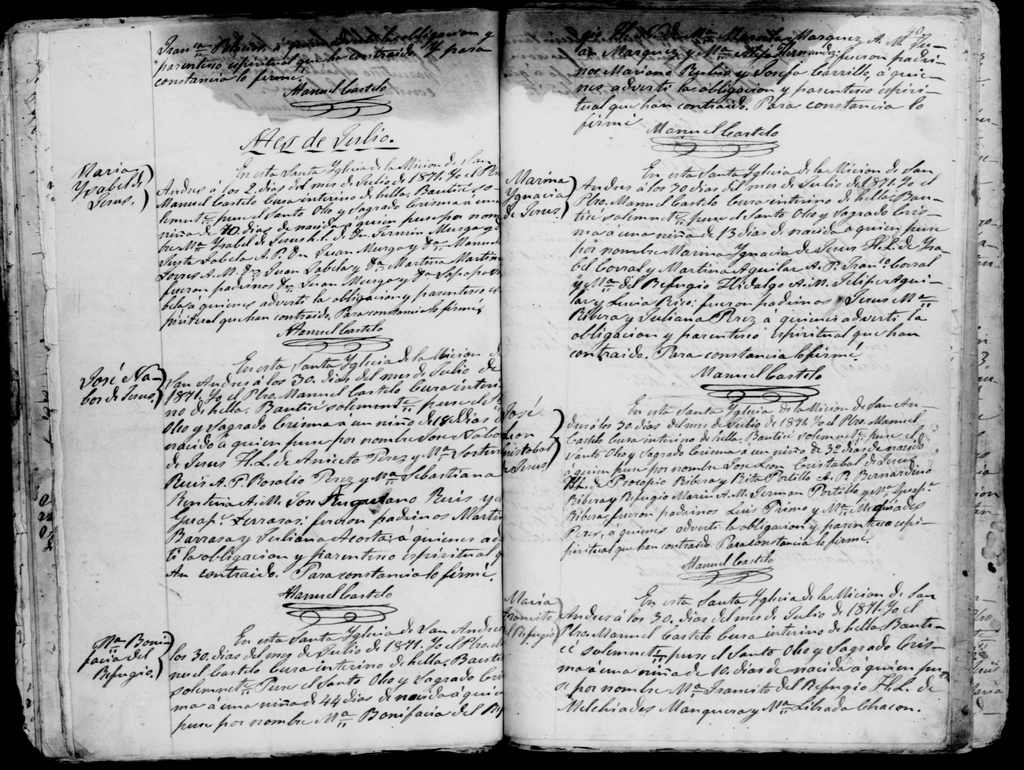 parentesco espiritual que ha contraido. Y para
constancia lo firmé.
Manuel Castelo
Mes de Julio.
Maria
Ysabel de
Jesus.
En esta Santa Yglesia de la Micion de San
Andres á los 2. dias del mes de Julio de 1871. Yo el Pbro
Manuel Castelo Cura interino de hella, Bauticé so-
lemnte. puse el Santo Oleo y Sagrado Crisma á una
niña de 10. dias de nacida á quien puse por nom
bre Ma. Ysabel de Jesus h. l. de Dn. Fermin Murga y
fueron padrinos Dn. Juan Murga y
á quienes advertí la obligacion y parentesco es
piritual que han contraido. Para constancia lo firmé,
Manuel Castelo
José Na-
bor de Jesus,
En esta Santa Yglesia de la Micion de
San Andres á los 30. dias del mes de Julio de
1871. Yo el Pbro. Manuel Castelo Cura interi
no de hella. Bauticé solemnemte. puse el Sto
Oleo y Sagrado Crisma á un niño de 18 dias de
nacido á quien puse por nombre José Nabor
de Jesus H. L. de Aniceto Perez y Ma.
Ruis A. P. Rosalio Perez y Ma. Sebastiana
Renteria A. M. José Ruis y
Terrasas: fueron padrinos Martin
Barrasa y Juliana Acosta á quienes adver
tí la obligacion y parentesco espiritual q
An contraido. Para constancia lo firmé.
Manuel Castelo
Ma. Boni
facia del
Refugio.
En esta Santa Yglesia de San Andres
los 30. dias del mes de Julio de 1871. Yo el Pbro.
nuel Castelo Cura interino de hella, Bauticé
solemnte. Puse el Santo Oleo y Sagrado Cris
ma á una niña de 44 dias de nacida á quien
puse por nombre Ma. Bonifacia del Re
Marquez y Ma. Hernandez; fueron padri
nos Mariano Rubio y Josefa Carrillo, á quie
nes advertí la obligacion y parentesco espiri-
tual que han contraido. Para constancia lo
firmé
Manuel Castelo
Marina
Ygnacia
de Jesus.
En esta Santa Yglesia de la Micion de San
Andres á los 30 dias del mes de Julio de 1871. Yo el
Pbro. Manuel Castelo Cura interino de hella Bau-
ticé solemnete. puse el Santo Oleo y Sagrado Cris
ma á una niña de 13 dias de nacida á quien puse
por nombre Marina Ygnacia de Jesus H. L. de Ysa
bel Corral y Martina Aguilar A. P. Franco. Corral
y Ma. del Refugio Hidalgo A. M. Felipe Agui-
lar y Lucia Rios: fueron padrinos Jesus Ma.
Ribera y Juliana Perez á quienes advertí la
obligacion y parentesco espiritual que han
contraido. Para constancia lo firmé.
Manuel Castelo
José
Leon
Cristobal
de Jesus,
En esta Santa Yglesia de la Micion de San An-
dres á los 30 dias del mes de Julio de 1871. Yo el Pbro. Manuel
Castelo Cura interino de hella, Bauticé solemnete. puse el
Santo Oleo y Sagrado Crisma á un niño de 32 dias de nacido
á quien puse por nombre José Leon Cristobal de Jesus
H. L. de Procopio Ribera y Rita Portillo A. P. Bernardino
Ribera y Refugio Marin A. M. German Portillo y
Ribera fueron padrinos Luis Primo y Ma. Melquiades
Perez, á quienes advertí la obligacion y parentesco espi-
piritual que han contraido. Para constancia lo firmé.
Manuel Castelo
Maria
Transito
del Refugio
En esta Santa Yglesia de la Micion de San
Andres á los 30. dias del mes de Julio de 1871. Yo el
Pbro. Manuel Castelo Cura interino de hella, Bauti-
cé solemnte. puse el Santo Oleo y Sagrado Cris-
ma á una niña de 10. dias de nacida á quien pu
se por nombre Ma. Transito del Refugio H. L. de
Melchiades Manquera y Ma. Librada Chacon.